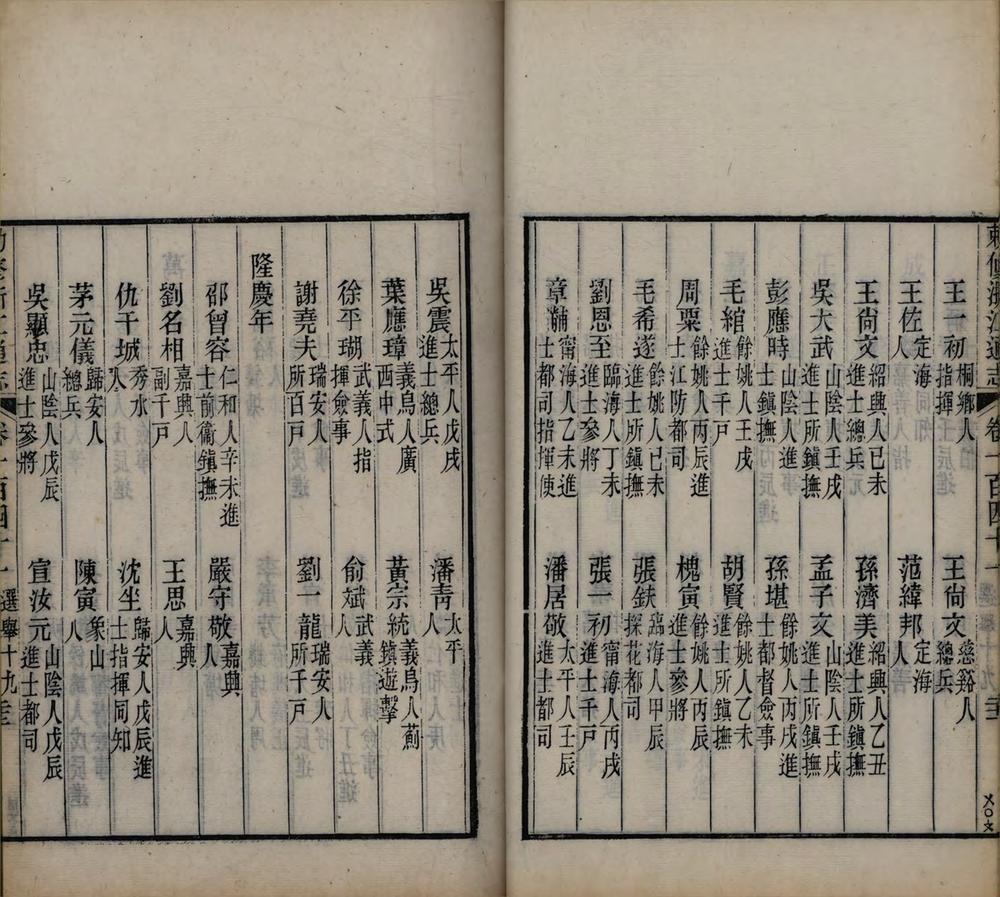 敕修浙江通志 卷一百四十一 選舉十九
王一初 桐鄉人指揮 王尙文 慈谿人總兵
王佐 定海人 范緯邦 定海人
王尙文 紹興人已未進士總兵 孫濟美 紹興人乙丑進士所鎭撫
吳大武 山陰人壬戌進士所鎭撫 孟子文 山陰人壬戌進士所鎭撫
彭應時 山陰人進士鎭撫 孫堪 餘姚人丙戌進士都督僉事
毛綰 餘姚人壬戌進士千戸 胡賢 餘姚人乙未進士所鎭撫
周粟 餘姚人丙辰進士江防都司 槐寅 餘姚人丙辰進士參將
毛希遂 餘姚人已未進士所鎭撫 張鈇 臨海人甲辰探花都司
劉恩至 臨海人丁未進士參將 張一初 甯海人丙戌進士千戸
章黼 甯海人乙未進士都司指揮使 潘居敬 太平人壬辰進士都司
吳震 太平人戊戌進士總兵 潘靑 太平人
葉應璋 義烏人廣西中式 黃宗統 義烏人薊鎭遊擊
徐平瑚 武義人指揮僉事 俞斌 武義人
謝堯夫 瑞安人所百戸 劉一龍 瑞安人所千戸
隆慶年
邵曾容 仁和人辛未進士前衞鎭撫 嚴守敬 嘉興人
劉名相 嘉興人副千戸 王思 嘉興人
仇干城 秀水人 沈坐 歸安人戊辰進士指揮同知
茅元儀 歸安人總兵 陳寅 象山人
吳顯忠 山陰人戊辰進士參將 宣汝元 山陰人戊辰進士都司
卷一百四十一 選舉十九